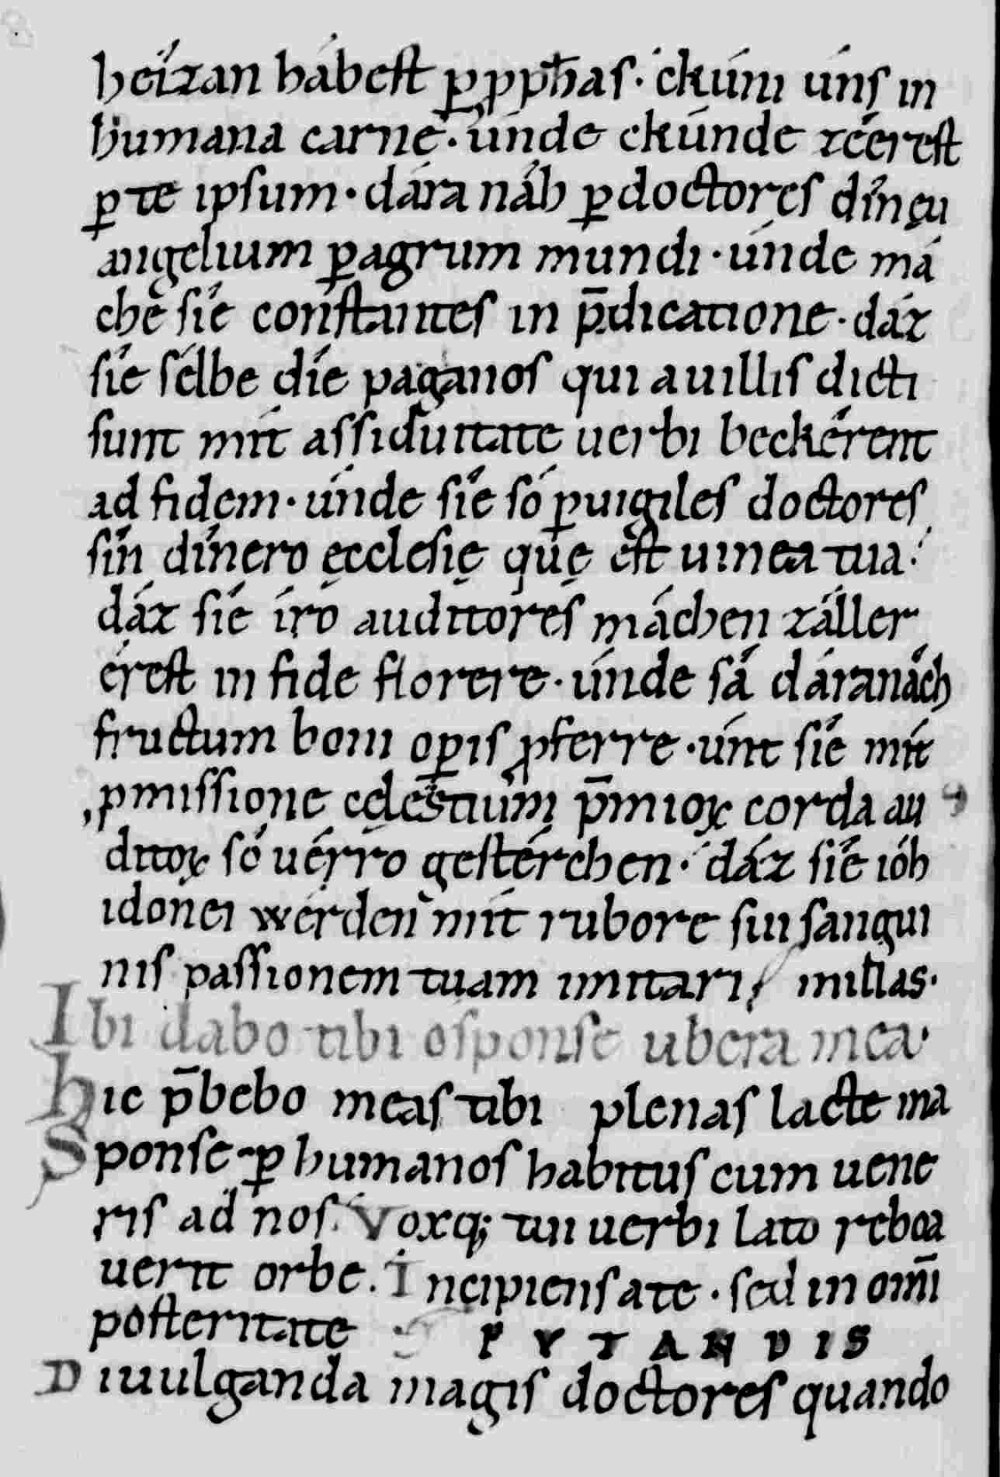 heízan hábest ꝑ ꝓph̄as · ckúm úns in
humana carne · únde ckúnde zêerest
ꝑ te ipsum · dára náh ꝑ doctores dîn ęu
angelium ꝑ agrum mundi · únde má
che síe constantes in p̄dicatione · dáz
síe sélbe díe paganos qui a uillis dicti
sunt mít assiduitate uerbi beckêrent
ad fidem · únde síe só ꝑuigiles doctores
sín dínero ęcclesię quę est uinea tua ·
dáz síe íro auditores máchen zâller
êrest in fide florere · únde sâ dáranâch
fructum boni oꝑis ꝓferre · únt síe mít
ꝓmissione cęlestium p̄mioꝝ corda au
ditoꝝ só uérro gestérchen · dáz síe ióh
idonei wérden mít rubore sui sangui
nis passionem tuam imitari millas ·
Ibi dabo tibi o sponse ubera mea ·
Hic p̄bebo meas tibi plenas lacte ma
Sponse · ꝑ humanos habitus cum uene
ris ad nos. Voxq; tui uerbi lato reboa
uerit orbe. Incipiens a te · sed in om̄i
posteritate PVTANDIS
Diuulganda magis doctores quando